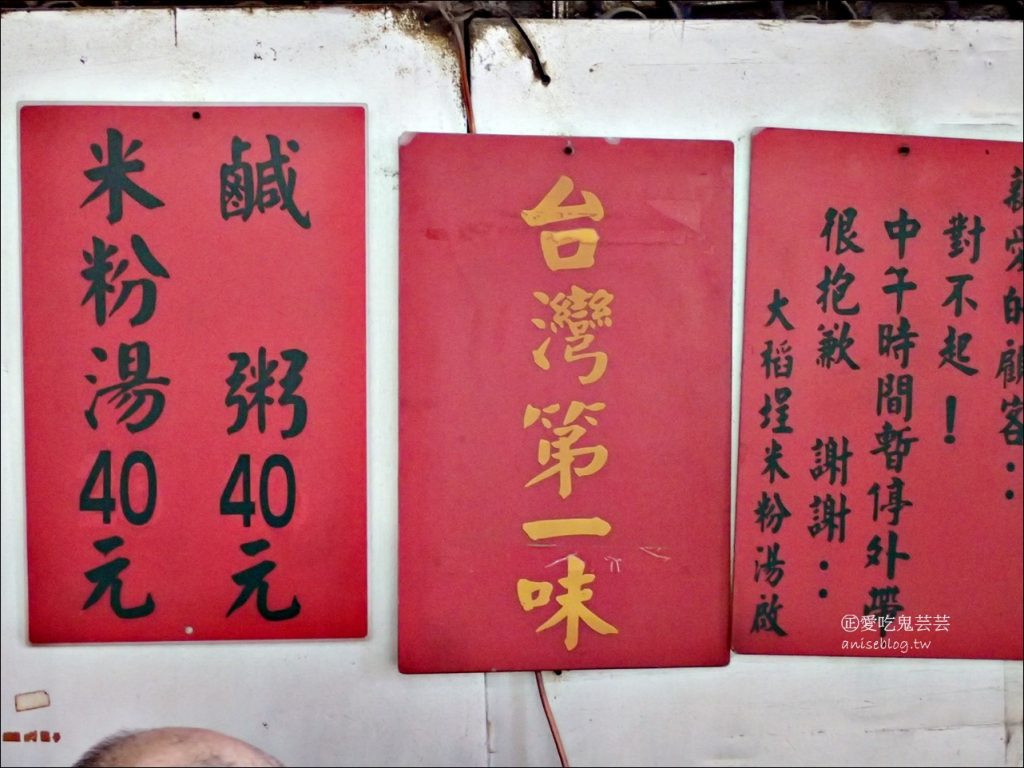 鹹粥40元
米粉湯40元
台灣第一味
親愛的顧客：
對不起！
中午時間暫停外帶
很抱歉 謝謝：
大稻埕米粉湯啟
㊣愛吃鬼芸芸
aniseblog.tw